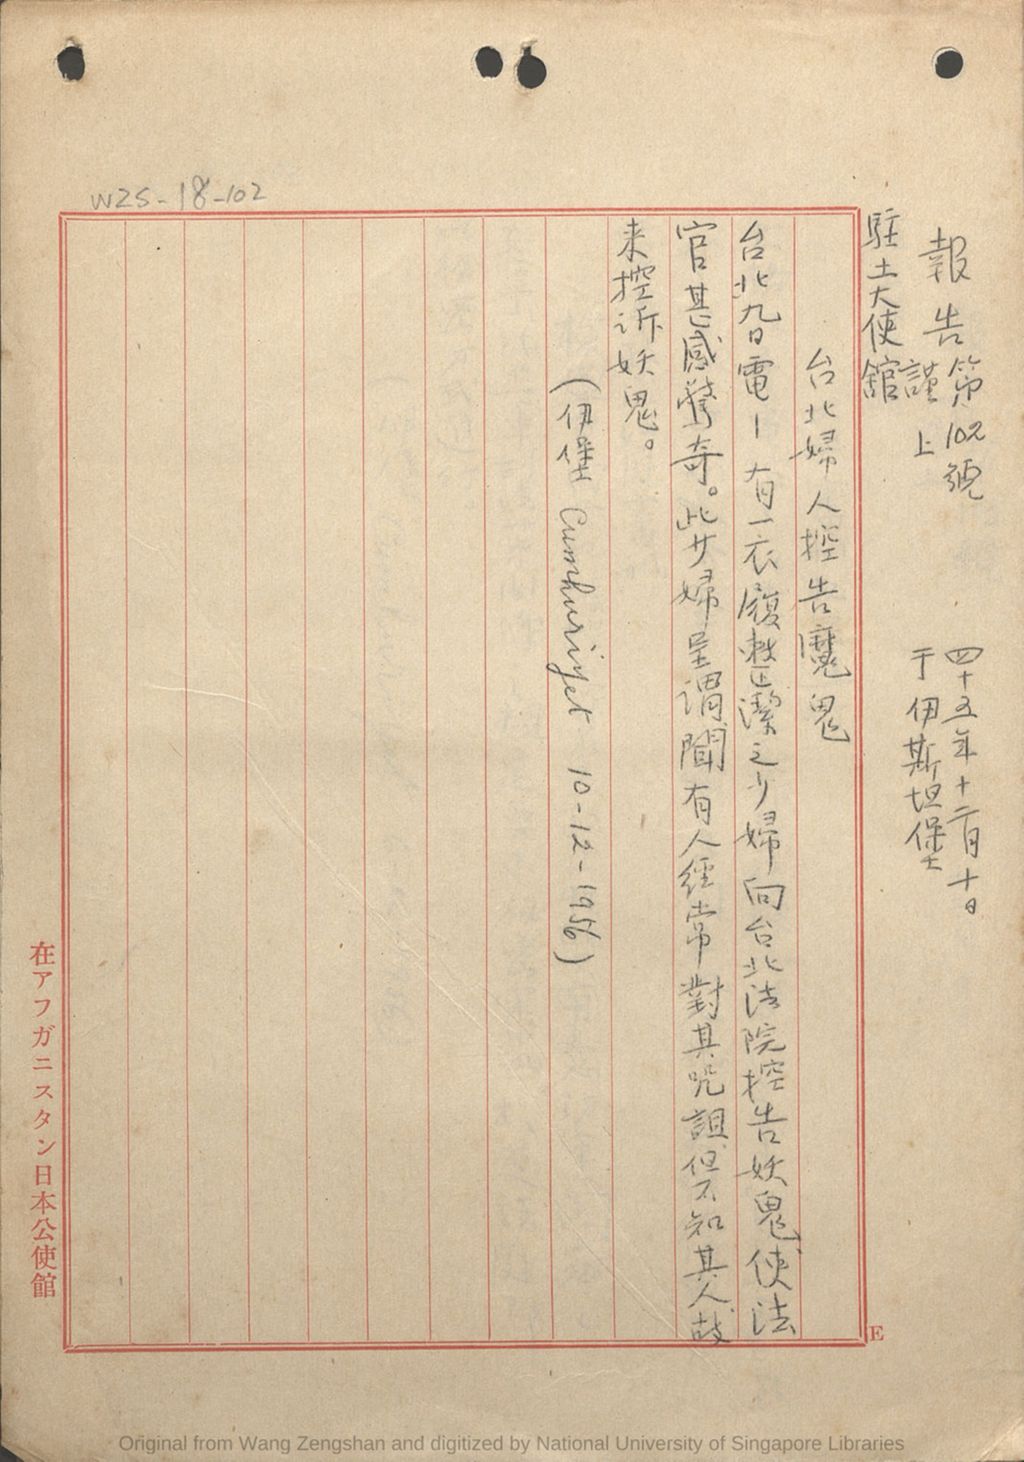 WZS-18-102
報告第102號
四十五年十二月十日
于伊斯坦堡
謹上
駐土大使舘
台北婦人控告魔鬼
台北九日電－有一衣履整潔之少婦向台北法院控告妖鬼,使法
官甚感驚奇。此少婦呈謂,聞有人經常對其咒詛,但不知其人,故
来控诉妖鬼。
(伊堡 Cumhuriyet 10-12-1956)
在アフガニスタン日本公使館
E
Original from Wang Zengshan and digitized by National University of Singapore Libraries